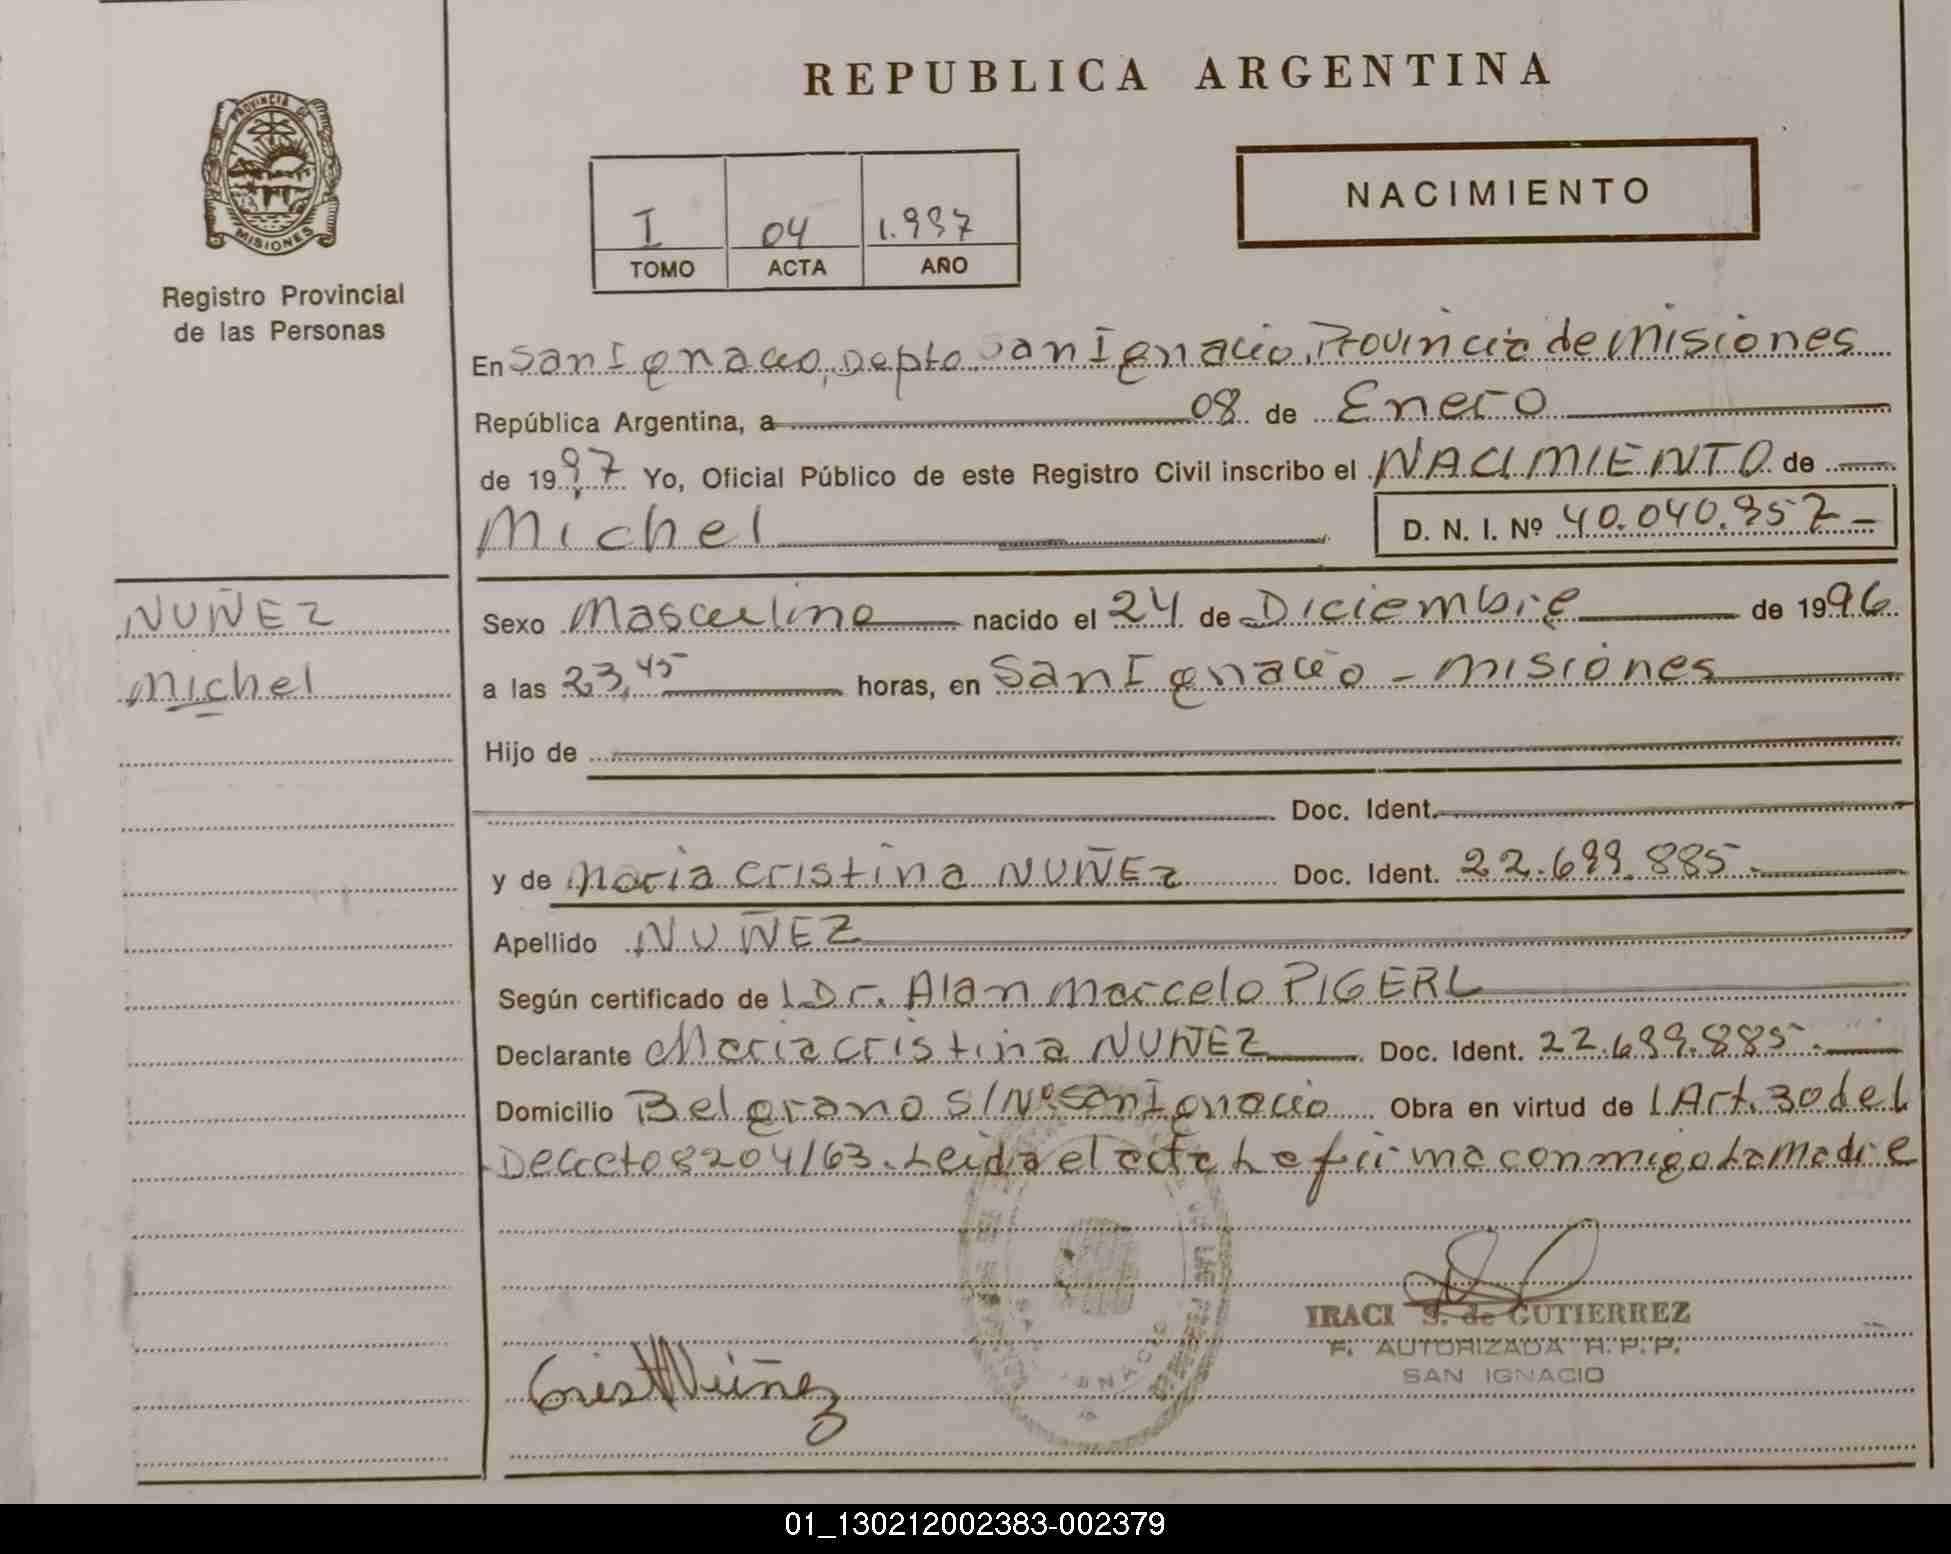 REPUBLICA ARGENTINA
PROVINCIA DE
MISIONES
Registro Provincial
de las Personas
NACIMIENTO
I 04 1.997
TOMO ACTA AÑO
En San Ignacio, Depto. San Ignacio, Provincia de Misiones
República Argentina, a 08 de Enero
de 1997 Yo, Oficial Público de este Registro Civil inscribo el NACIMIENTO de
Michel D. N. I. Nº 40.040.957-
NUÑEZ
Michel
Sexo Masculino nacido el 24 de Diciembre de 1996
a las 23,45 horas, en San Ignacio - Misiones
Hijo de
Doc. Ident.
y de Maria Cristina NUÑEZ Doc. Ident. 22.699.885.
Apellido NUÑEZ
Según certificado de l Dr. Alan Marcelo PIGERL
Declarante Maria Cristina NUÑEZ Doc. Ident. 22.699.885.
Domicilio Belgrano S/Nº San Ignacio Obra en virtud de l Art. 30 del
Decreto 8204/63. Leida el acta La firma conmigo La Madre
IRACI S. de GUTIERREZ
F. AUTORIZADA R. P. P.
SAN IGNACIO
Crist Nuñez
01_130212002383-002379